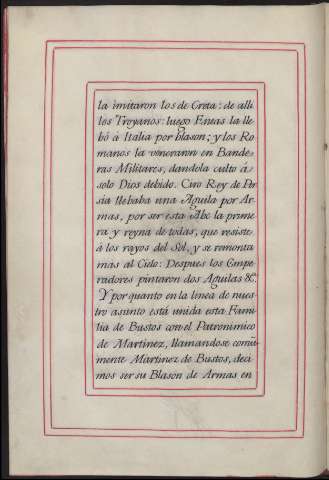 la imitaron los de Creta: de alli
los Troyanos: luego Eneas la lle
bó á Italia por blason; y los Ro
manos la veneraron en Bande
ras Militares, dandola culto á
solo Dios debido. Ciro Rey de Per
sia llebaba una Aguila por Ar
mas, por ser esta Abe la prime
ra y reyna de todas, que resiste
á los rayos del Sol, y se remonta
más al Cielo: Despues los Empe
radores pintaron dos Aguilas &c.
Y por quanto en la linea de nues
tro asunto está unida esta Fami
lia de Bustos con el Patronimico
de Martinez, llamandose comun
mente Martinez de Bustos, deci
mos ser su Blason de Armas en